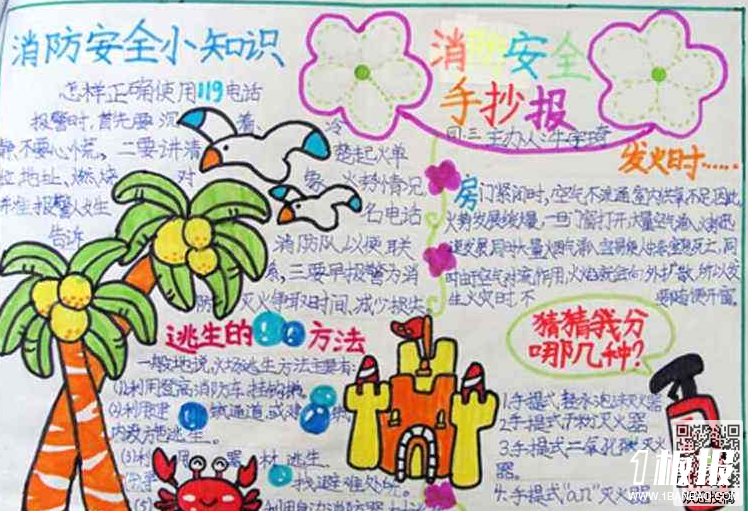 消防安全小知识
怎样正确使用119电话
报警时,首先要沉着、冷
静、不要心慌。二要讲清楚起火单
位、地址、燃烧对象、火势情况
并将报警人姓
名、电话
告诉消防队以便联
系,三要早报警为消
防灭火争取时间,减少损失
逃生的方法
一般地说,火场逃生方法主要有:
(1)利用登高消防车,挂钩梯
(2)利用建
通道或建
内设施逃生。
(3)利用
器材逃生。
找避难处所。
(5)
消防安全
手抄报
主办人:
发火时……
房门紧闭时,空气不流通,室内供氧不足,因此
火势发展缓慢,一旦门窗打开,大量空气涌入,火势迅
速发展,同时大量烟气
同
时由于空气对流作用,火焰就会向外扩散,所以发
生火灾时,不要随便开窗。
猜猜我分
哪几种?
1.手提式轻水泡沫灭火器
2.手提式干粉灭火器
3.手提式二氧化碳灭火
器
4.手提式“1211”灭火器
1板报
WWW.1BANBAO.COM